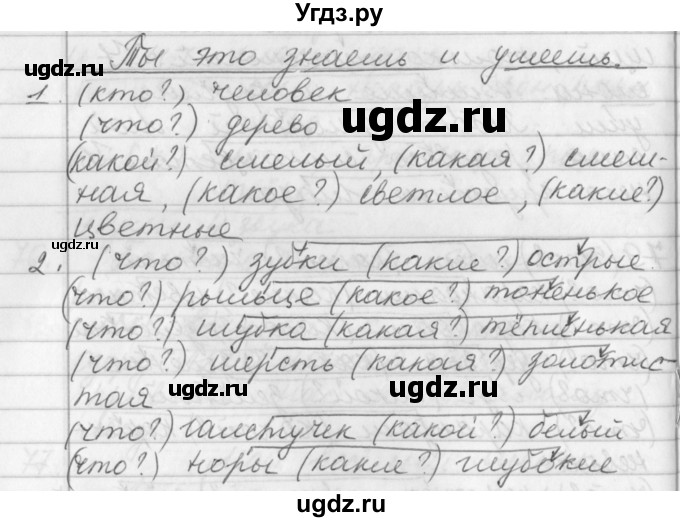 Угдз.ру
Ты это знаешь и умеешь.
ugdz.ru
1. (кто?) человек
(что?) дерево
ugdz.ru
(какой?) смелый, (какая?) смеш-
ная, (какое?) светлое, (какие?)
цветные
ugdz.ru
2. (что?) зубки (какие?) острые.
(что?) рыльце (какое?) тоненькое
(что?) шубка (какая?) тёпленькая
(что?) шерсть (какая?) золотис-
тая
ugdz.ru
ugdz.ru
(что?) галстучек (какой?) белый
(что?) норы (какие?) глубокие
ugdz.ru
ugdz.ru